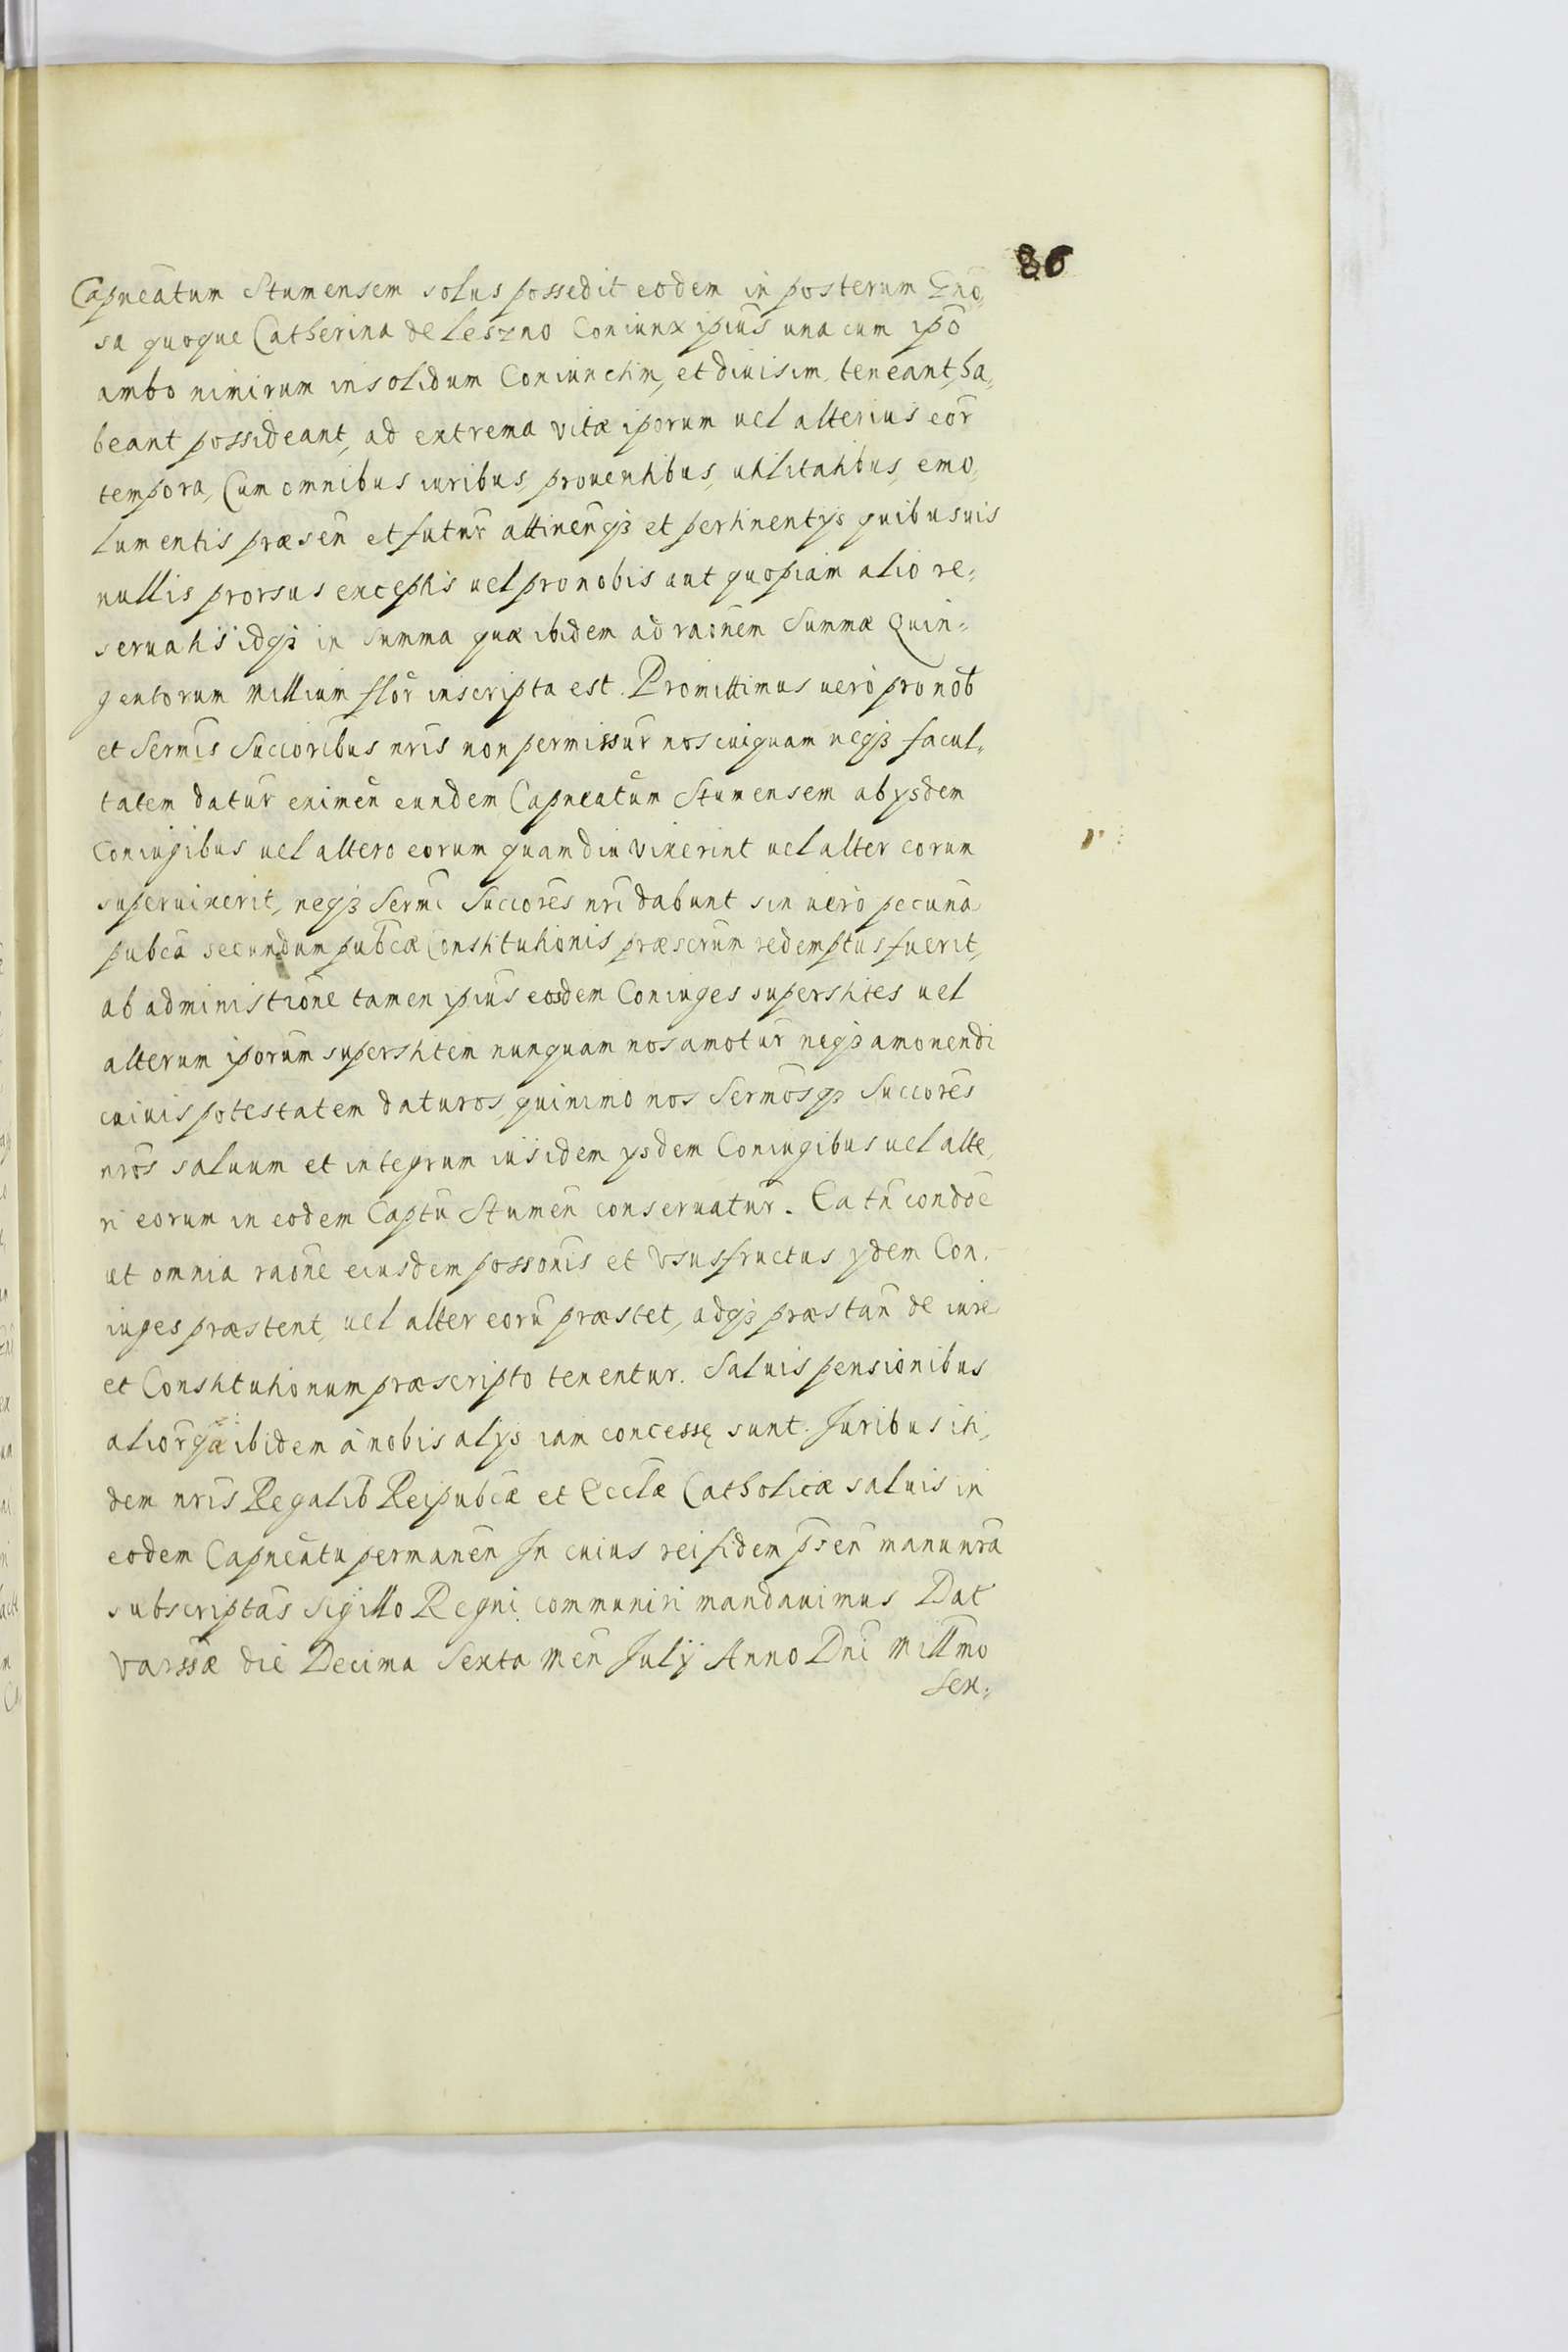 86
Capneatum Stumensem solus possedit eodem in posterum Gno,
sa quoque Catherina de Leszno Coniunx ipius una cum ipo
ambo nimirum insolidum Coniunctim, et diuisim, teneant, ha,
beant possideant, ad extrema vitæ iporum uel alterius eor
tempora, Cum omnibus iuribus, prouentibus, utilitatibus, emo,
lumentis præsen et futur attinenqȝ et pertinentys quibusuis
nullis prorsus exceptis uel pro nobis aut quopiam alio re=
seruatis idqȝ in Summa quæ ibidem ad raonem Summæ Quin=
gentorum Millium flor inscripta est. Promittimus uerò pro nob
et Sermis Succoribus nris non permissur nos cuiquam neqȝ facul=
tatem datur eximen eundem Capneatum Stumensem ab ysdem
Coniugibus uel altero eorum quam diu vixerint uel alter eorum
superuixerit, neqȝ Sermi Succores nri dabunt sin uerò pecuna
pubca secundum pubcæ Constitutionis præscrum redemptus fuerit,
ab administione tamen ipius eosdem Coniuges superstites uel
alterum iporum superstitem nunquam nos amotur neqȝ amouendi
cuiuis potestatem daturos, quinimo nos Sermosqȝ Succores
nros saluum et integrum ius idem ysdem Coniugibus uel alte,
ri eorum in eodem Captu Stumen conseruatur. Ea tn condoe
ut omnia raone eiusdem possonis et Vsusfructus ydem Con.
iuges præstent, uel alter eoru præstet, adqȝ præstan de iure
et Constitutionum præscripto tenentur. Saluis pensionibus
alior quæ ibidem à nobis alys iam concessę sunt. Juribus iti,
dem nris Regalib Reipubcæ et Ecclæ Catholicæ saluis in
eodem Capneatu permanen In cuius rei fidem psen manu nra
subscriptas Sigillo Regni communiri mandauimus Dat
Varssæ die Decima Sexta Men July Anno Dni Millmo
Sex=